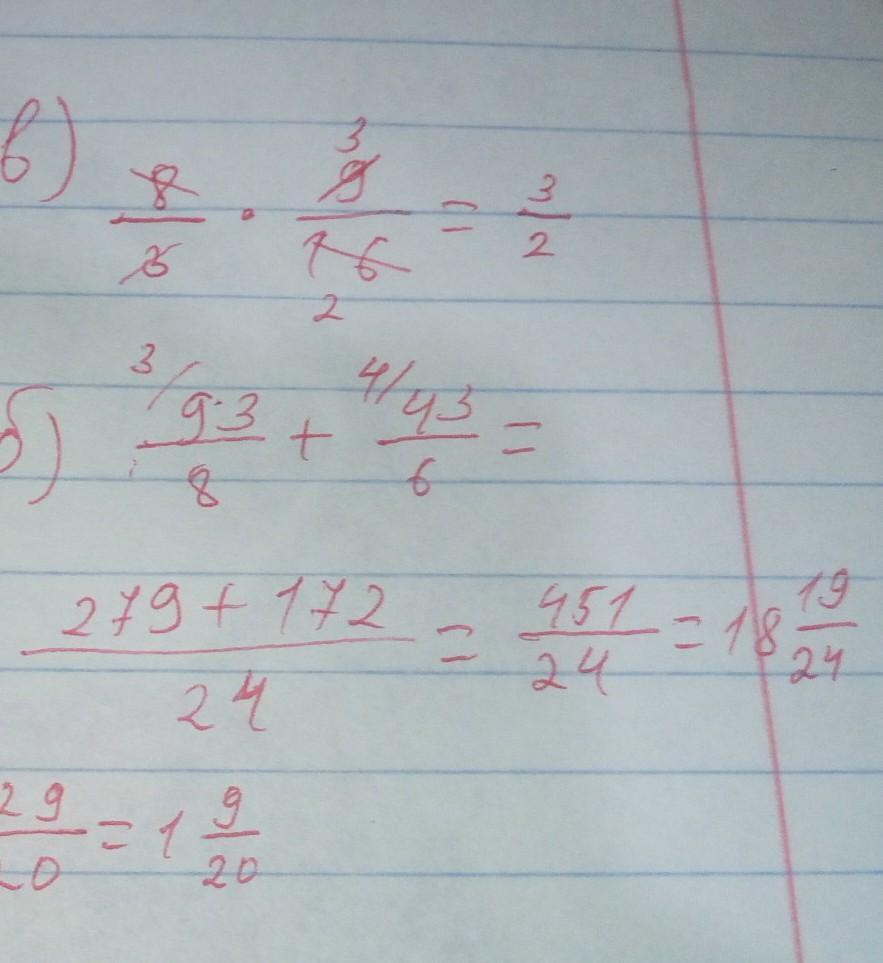 в) 8/3 · 9/16 = 3/2
3
2
б) 3/ 93/8 + 4/ 43/6 =
279 + 172 / 24 = 451/24 = 18 19/24
29/20 = 1 9/20